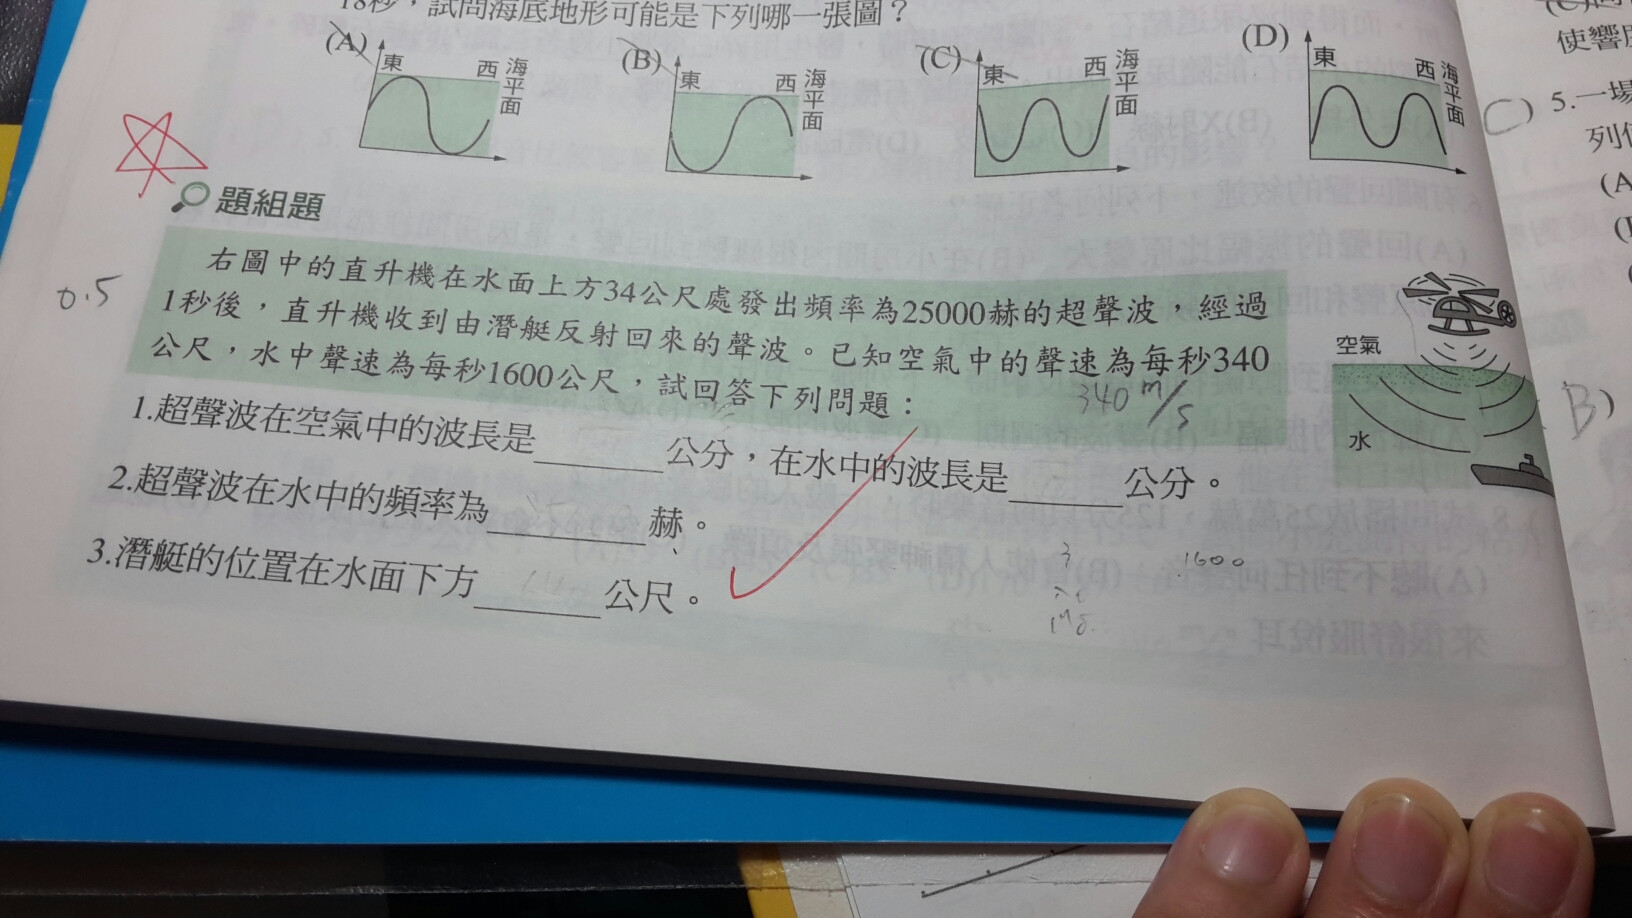 18秒，試問海底地形可能是下列哪一張圖？
(A) 東 西 海平面
(B) 東 西 海平面
(C) 東 西 海平面
(D) 東 西 海平面
題組題
右圖中的直升機在水面上方34公尺處發出頻率為25000赫的超聲波，經過
1秒後，直升機收到由潛艇反射回來的聲波。已知空氣中的聲速為每秒340
公尺，水中聲速為每秒1600公尺，試回答下列問題：
0.5
340 m/s
空氣
水
1.超聲波在空氣中的波長是______公分，在水中的波長是______公分。
2.超聲波在水中的頻率為______赫。
3.潛艇的位置在水面下方______公尺。
1600
使響
C) 5.一場
列
(A
B)